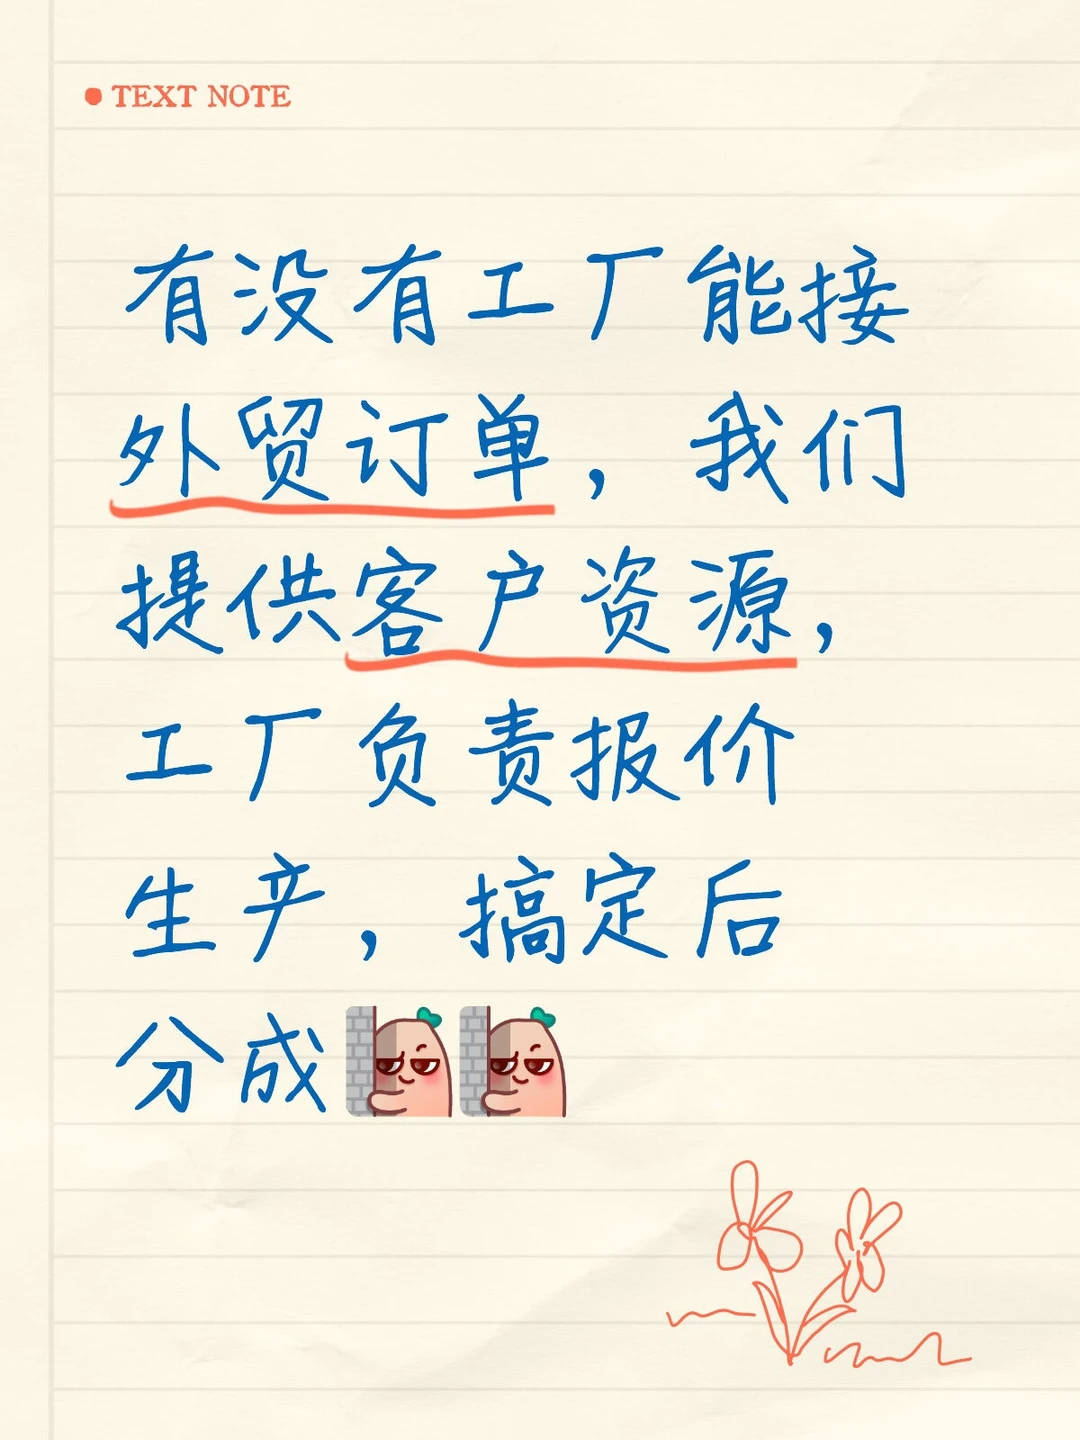 TEXT NOTE
有没有工厂能接
外贸订单，我们
提供客户资源，
工厂负责报价
生产，搞定后
分成